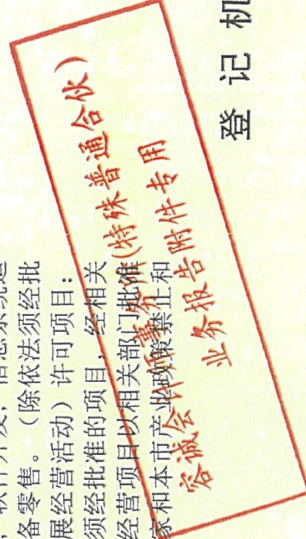 ，软件开发；信息系统运
备零售。（除依法须经批
展经营活动）许可项目：
须经批准的项目，经相关
经营项目以相关部门批准
家和本市产业政策禁止和
登记机
容诚会计师事务所(特殊普通合伙)
业务报告附件专用